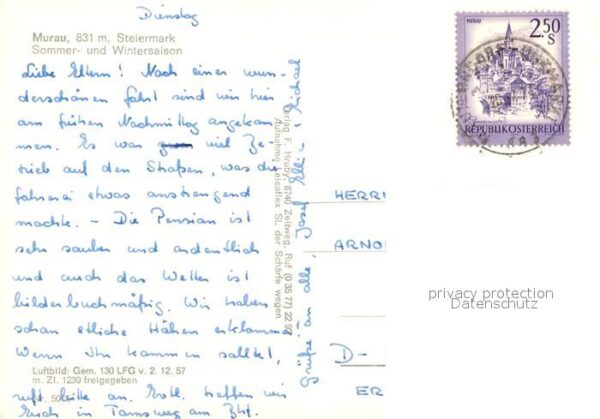 Dienstag
Murau, 831 m, Steiermark
Sommer- und Wintersaison
Liebe Eltern! Nach einer wun-
derschönen Fahrt sind wir hier
am frühen Nachmittag angekom-
men. Es war viel Be-
trieb auf den Straßen, was die
Fahrerei etwas anstrengend
machte. - Die Pension ist
sehr sauber und ordentlich
und auch das Wetter ist
bilderbuchmäßig. Wir haben
schon etliche Höhen erklommen.
Wenn Ihr kommen solltet,
Luftbild: Gem. 130 LFG v. 2. 12. 57
m. Zl. 1230 freigegeben
ruft bitte an. Evtl. treffen wir
Euch in Tamsweg am Bhf.
Grüße an alle, Josef, Elli Michael
Verlag F. Hruby, 8740 Zeltweg, Ruf (0 35 77) 22 97
Aufnahme Leicaflex SL der Schärfe wegen
MURAU
2.50
S
REPUBLIK ÖSTERREICH
HERRN
ARNO
D-
ER
privacy protection
Datenschutz